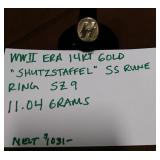 WWII ERA 14KT GOLD
"SHUTZSTAFFEL" SS RUNE
RING SZ 9
11.04 GRAMS
MELT $1031-